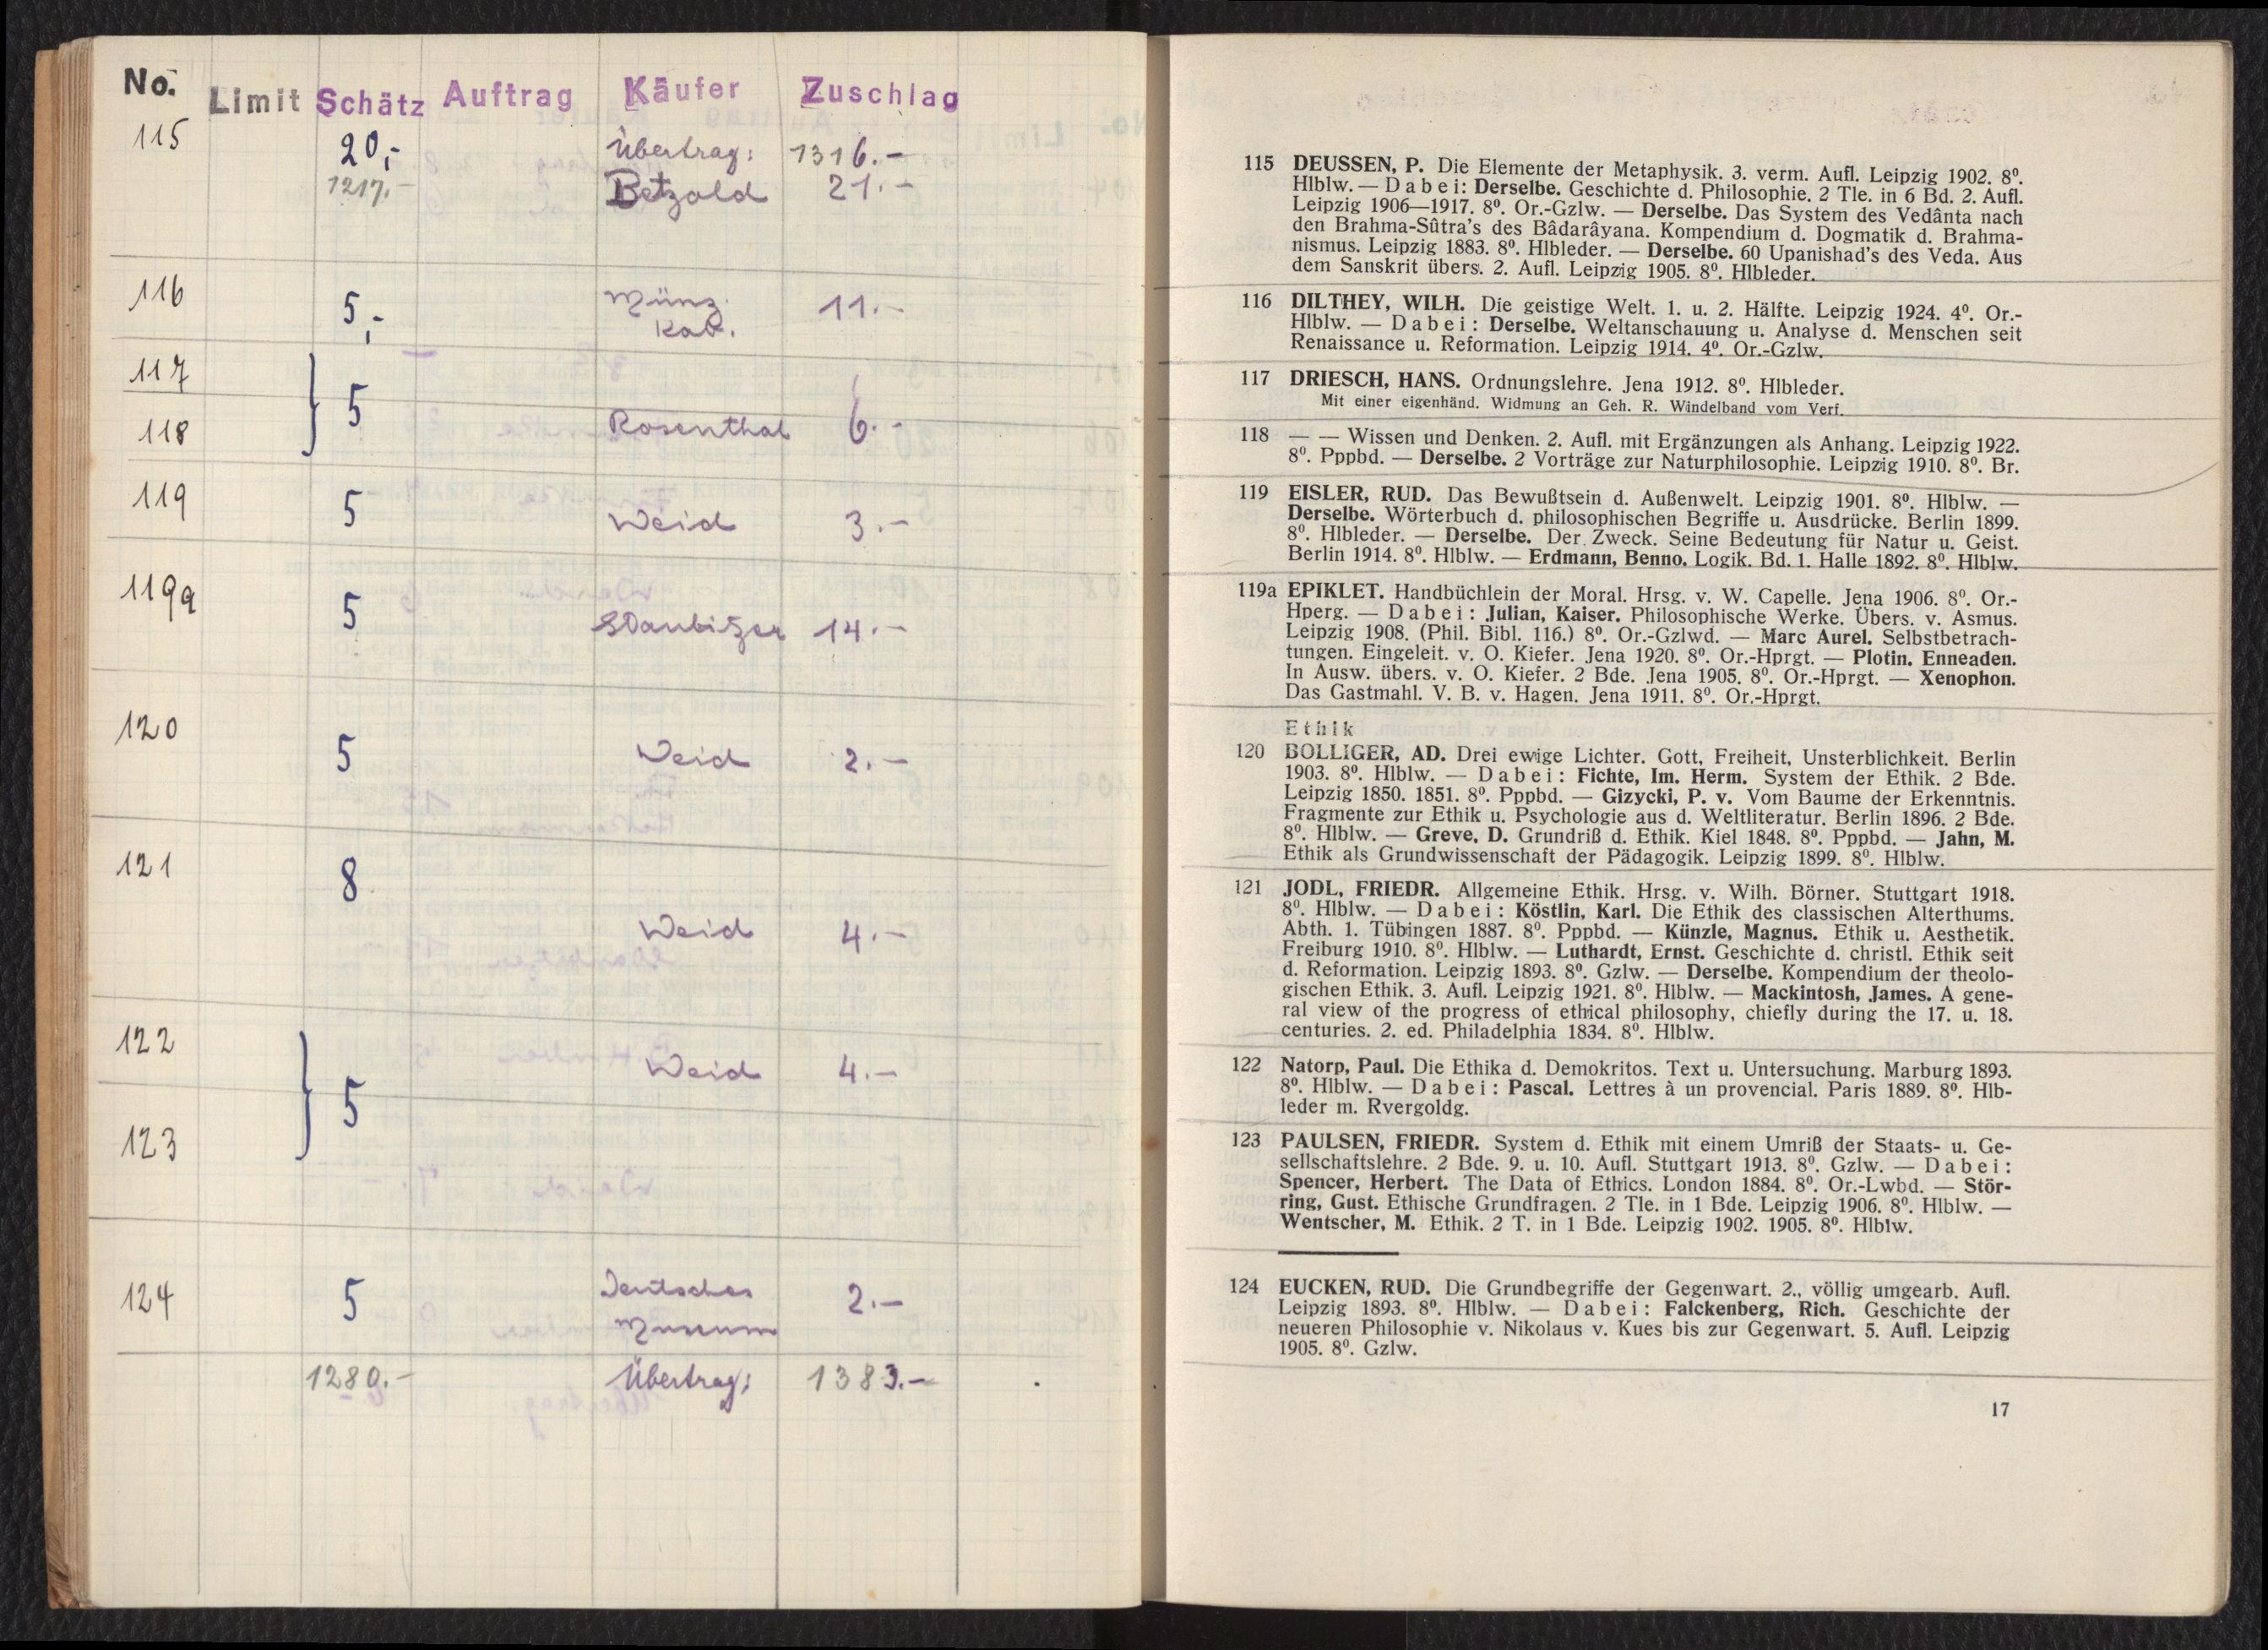 No. Limit Schätz Auftrag Käufer Zuschlag
115 20,- Übertrag: 1316.-
1217.- Betzold 21.-
116 5,- Münz. 11.-
Kab.
117
118 5 Rosenthal 6.-
119 5 Weid 3.-
119a 5 Staubitzer 14.-
120 5 Weid 2.-
121 8
Weid 4.-
122 Weid 4.-
5
123
124 5 Deutsches 2.-
Museum
1280.- Übertrag: 1383.-
115 DEUSSEN, P. Die Elemente der Metaphysik. 3. verm. Aufl. Leipzig 1902. 8⁰.
Hlblw. — Dabei: Derselbe. Geschichte d. Philosophie. 2 Tle. in 6 Bd. 2. Aufl.
Leipzig 1906—1917. 8⁰. Or.-Gzlw. — Derselbe. Das System des Vedânta nach
den Brahma-Sûtra's des Bâdarâyana. Kompendium d. Dogmatik d. Brahma-
nismus. Leipzig 1883. 8⁰. Hlbleder. — Derselbe. 60 Upanishad's des Veda. Aus
dem Sanskrit übers. 2. Aufl. Leipzig 1905. 8⁰. Hlbleder.
116 DILTHEY, WILH. Die geistige Welt. 1. u. 2. Hälfte. Leipzig 1924. 4⁰. Or.-
Hlblw. — Dabei: Derselbe. Weltanschauung u. Analyse d. Menschen seit
Renaissance u. Reformation. Leipzig 1914. 4⁰. Or.-Gzlw.
117 DRIESCH, HANS. Ordnungslehre. Jena 1912. 8⁰. Hlbleder.
Mit einer eigenhänd. Widmung an Geh. R. Windelband vom Verf.
118 — — Wissen und Denken. 2. Aufl. mit Ergänzungen als Anhang. Leipzig 1922.
8⁰. Pppbd. — Derselbe. 2 Vorträge zur Naturphilosophie. Leipzig 1910. 8⁰. Br.
119 EISLER, RUD. Das Bewußtsein d. Außenwelt. Leipzig 1901. 8⁰. Hlblw. —
Derselbe. Wörterbuch d. philosophischen Begriffe u. Ausdrücke. Berlin 1899.
8⁰. Hlbleder. — Derselbe. Der Zweck. Seine Bedeutung für Natur u. Geist.
Berlin 1914. 8⁰. Hlblw. — Erdmann, Benno. Logik. Bd. 1. Halle 1892. 8⁰. Hlblw.
119a EPIKLET. Handbüchlein der Moral. Hrsg. v. W. Capelle. Jena 1906. 8⁰. Or.-
Hperg. — Dabei: Julian, Kaiser. Philosophische Werke. Übers. v. Asmus.
Leipzig 1908. (Phil. Bibl. 116.) 8⁰. Or.-Gzlwd. — Marc Aurel. Selbstbetrach-
tungen. Eingeleit. v. O. Kiefer. Jena 1920. 8⁰. Or.-Hprgt. — Plotin. Enneaden.
In Ausw. übers. v. O. Kiefer. 2 Bde. Jena 1905. 8⁰. Or.-Hprgt. — Xenophon.
Das Gastmahl. V. B. v. Hagen. Jena 1911. 8⁰. Or.-Hprgt.
Ethik
120 BOLLIGER, AD. Drei ewige Lichter. Gott, Freiheit, Unsterblichkeit. Berlin
1903. 8⁰. Hlblw. — Dabei: Fichte, Im. Herm. System der Ethik. 2 Bde.
Leipzig 1850. 1851. 8⁰. Pppbd. — Gizycki, P. v. Vom Baume der Erkenntnis.
Fragmente zur Ethik u. Psychologie aus d. Weltliteratur. Berlin 1896. 2 Bde.
8⁰. Hlblw. — Greve, D. Grundriß d. Ethik. Kiel 1848. 8⁰. Pppbd. — Jahn, M.
Ethik als Grundwissenschaft der Pädagogik. Leipzig 1899. 8⁰. Hlblw.
121 JODL, FRIEDR. Allgemeine Ethik. Hrsg. v. Wilh. Börner. Stuttgart 1918.
8⁰. Hlblw. — Dabei: Köstlin, Karl. Die Ethik des classischen Alterthums.
Abth. 1. Tübingen 1887. 8⁰. Pppbd. — Künzle, Magnus. Ethik u. Aesthetik.
Freiburg 1910. 8⁰. Hlblw. — Luthardt, Ernst. Geschichte d. christl. Ethik seit
d. Reformation. Leipzig 1893. 8⁰. Gzlw. — Derselbe. Kompendium der theolo-
gischen Ethik. 3. Aufl. Leipzig 1921. 8⁰. Hlblw. — Mackintosh, James. A gene-
ral view of the progress of ethical philosophy, chiefly during the 17. u. 18.
centuries. 2. ed. Philadelphia 1834. 8⁰. Hlblw.
122 Natorp, Paul. Die Ethika d. Demokritos. Text u. Untersuchung. Marburg 1893.
8⁰. Hlblw. — Dabei: Pascal. Lettres à un provencial. Paris 1889. 8⁰. Hlb-
leder m. Rvergoldg.
123 PAULSEN, FRIEDR. System d. Ethik mit einem Umriß der Staats- u. Ge-
sellschaftslehre. 2 Bde. 9. u. 10. Aufl. Stuttgart 1913. 8⁰. Gzlw. — Dabei:
Spencer, Herbert. The Data of Ethics. London 1884. 8⁰. Or.-Lwbd. — Stör-
ring, Gust. Ethische Grundfragen. 2 Tle. in 1 Bde. Leipzig 1906. 8⁰. Hlblw. —
Wentscher, M. Ethik. 2 T. in 1 Bde. Leipzig 1902. 1905. 8⁰. Hlblw.
124 EUCKEN, RUD. Die Grundbegriffe der Gegenwart. 2., völlig umgearb. Aufl.
Leipzig 1893. 8⁰. Hlblw. — Dabei: Falckenberg, Rich. Geschichte der
neueren Philosophie v. Nikolaus v. Kues bis zur Gegenwart. 5. Aufl. Leipzig
1905. 8⁰. Gzlw.
17